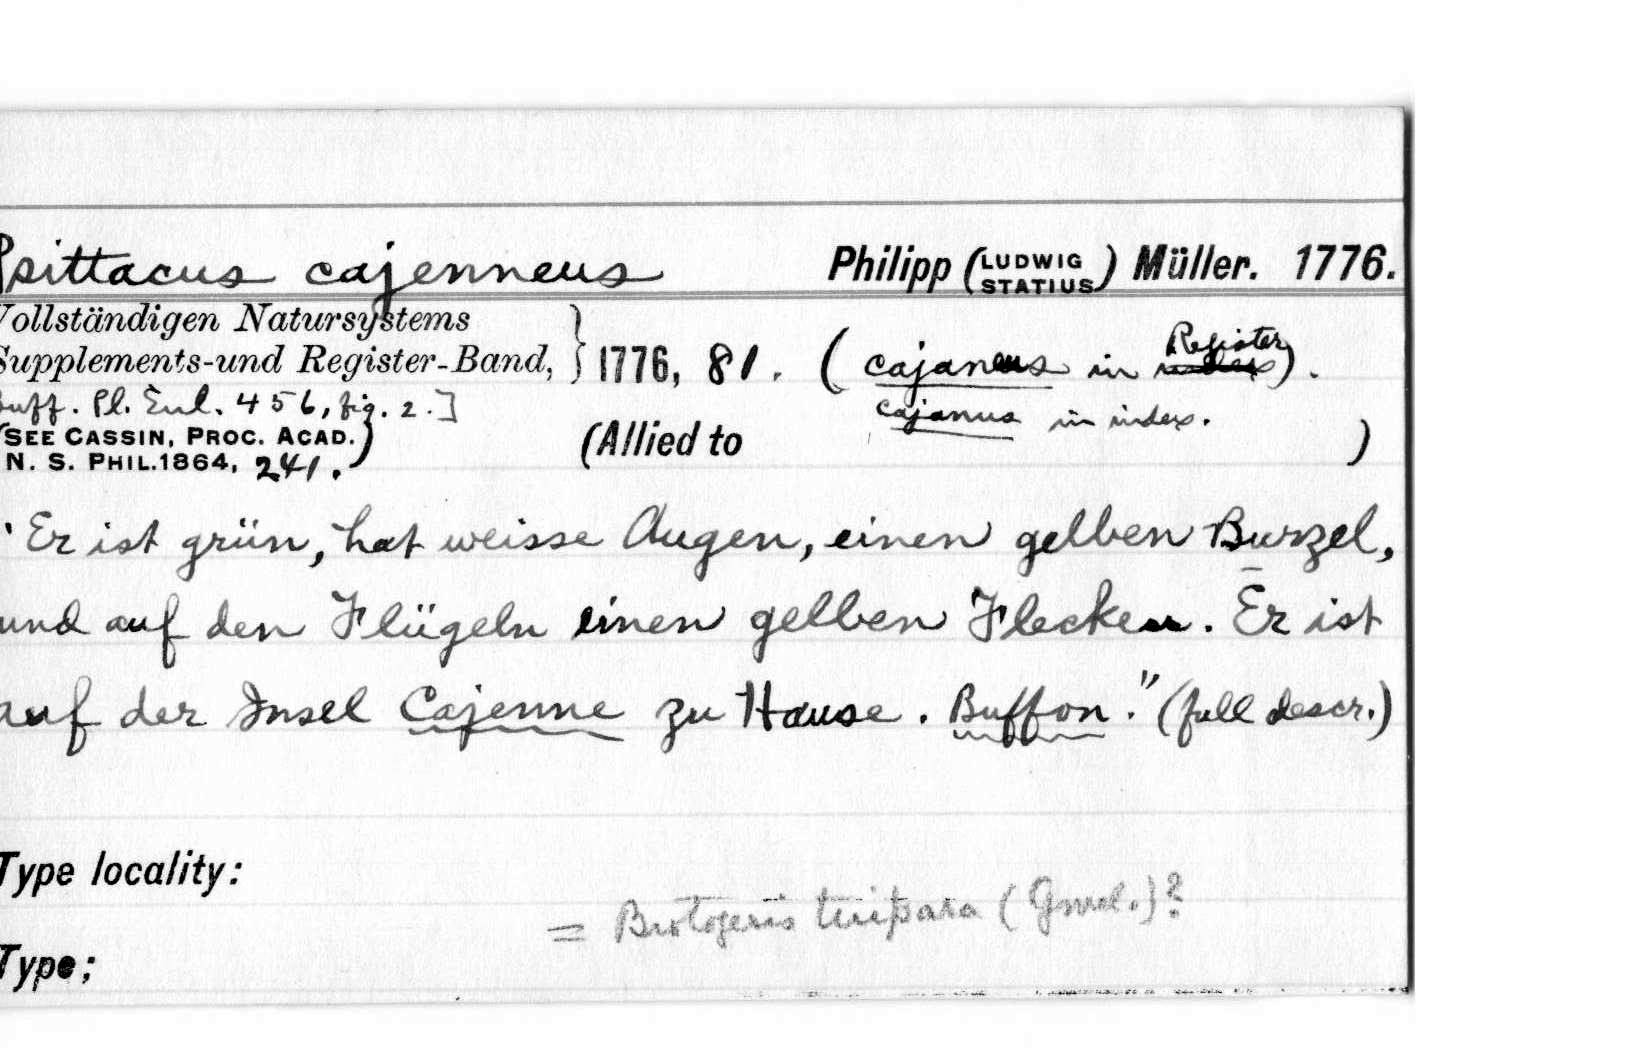 Psittacus cajenneus Philipp (LUDWIG STATIUS) Müller. 1776.
Vollständigen Natursystems
Supplements-und Register-Band, } 1776, 81. (cajaneus in Register index).
Buff. Pl. Enl. 456, fig. 2.]
cajanus in index.
(SEE CASSIN, PROC. ACAD.
N. S. PHIL. 1864, 241.)
(Allied to )
"Er ist grün, hat weisse Augen, einen gelben Burzel,
und auf den Flügeln einen gelben Flecken. Er ist
auf der Insel Cajenne zu Hause. Buffon." (full descr.)
Type locality:
= Brotogeris tuipara (Gmel.)?
Type;